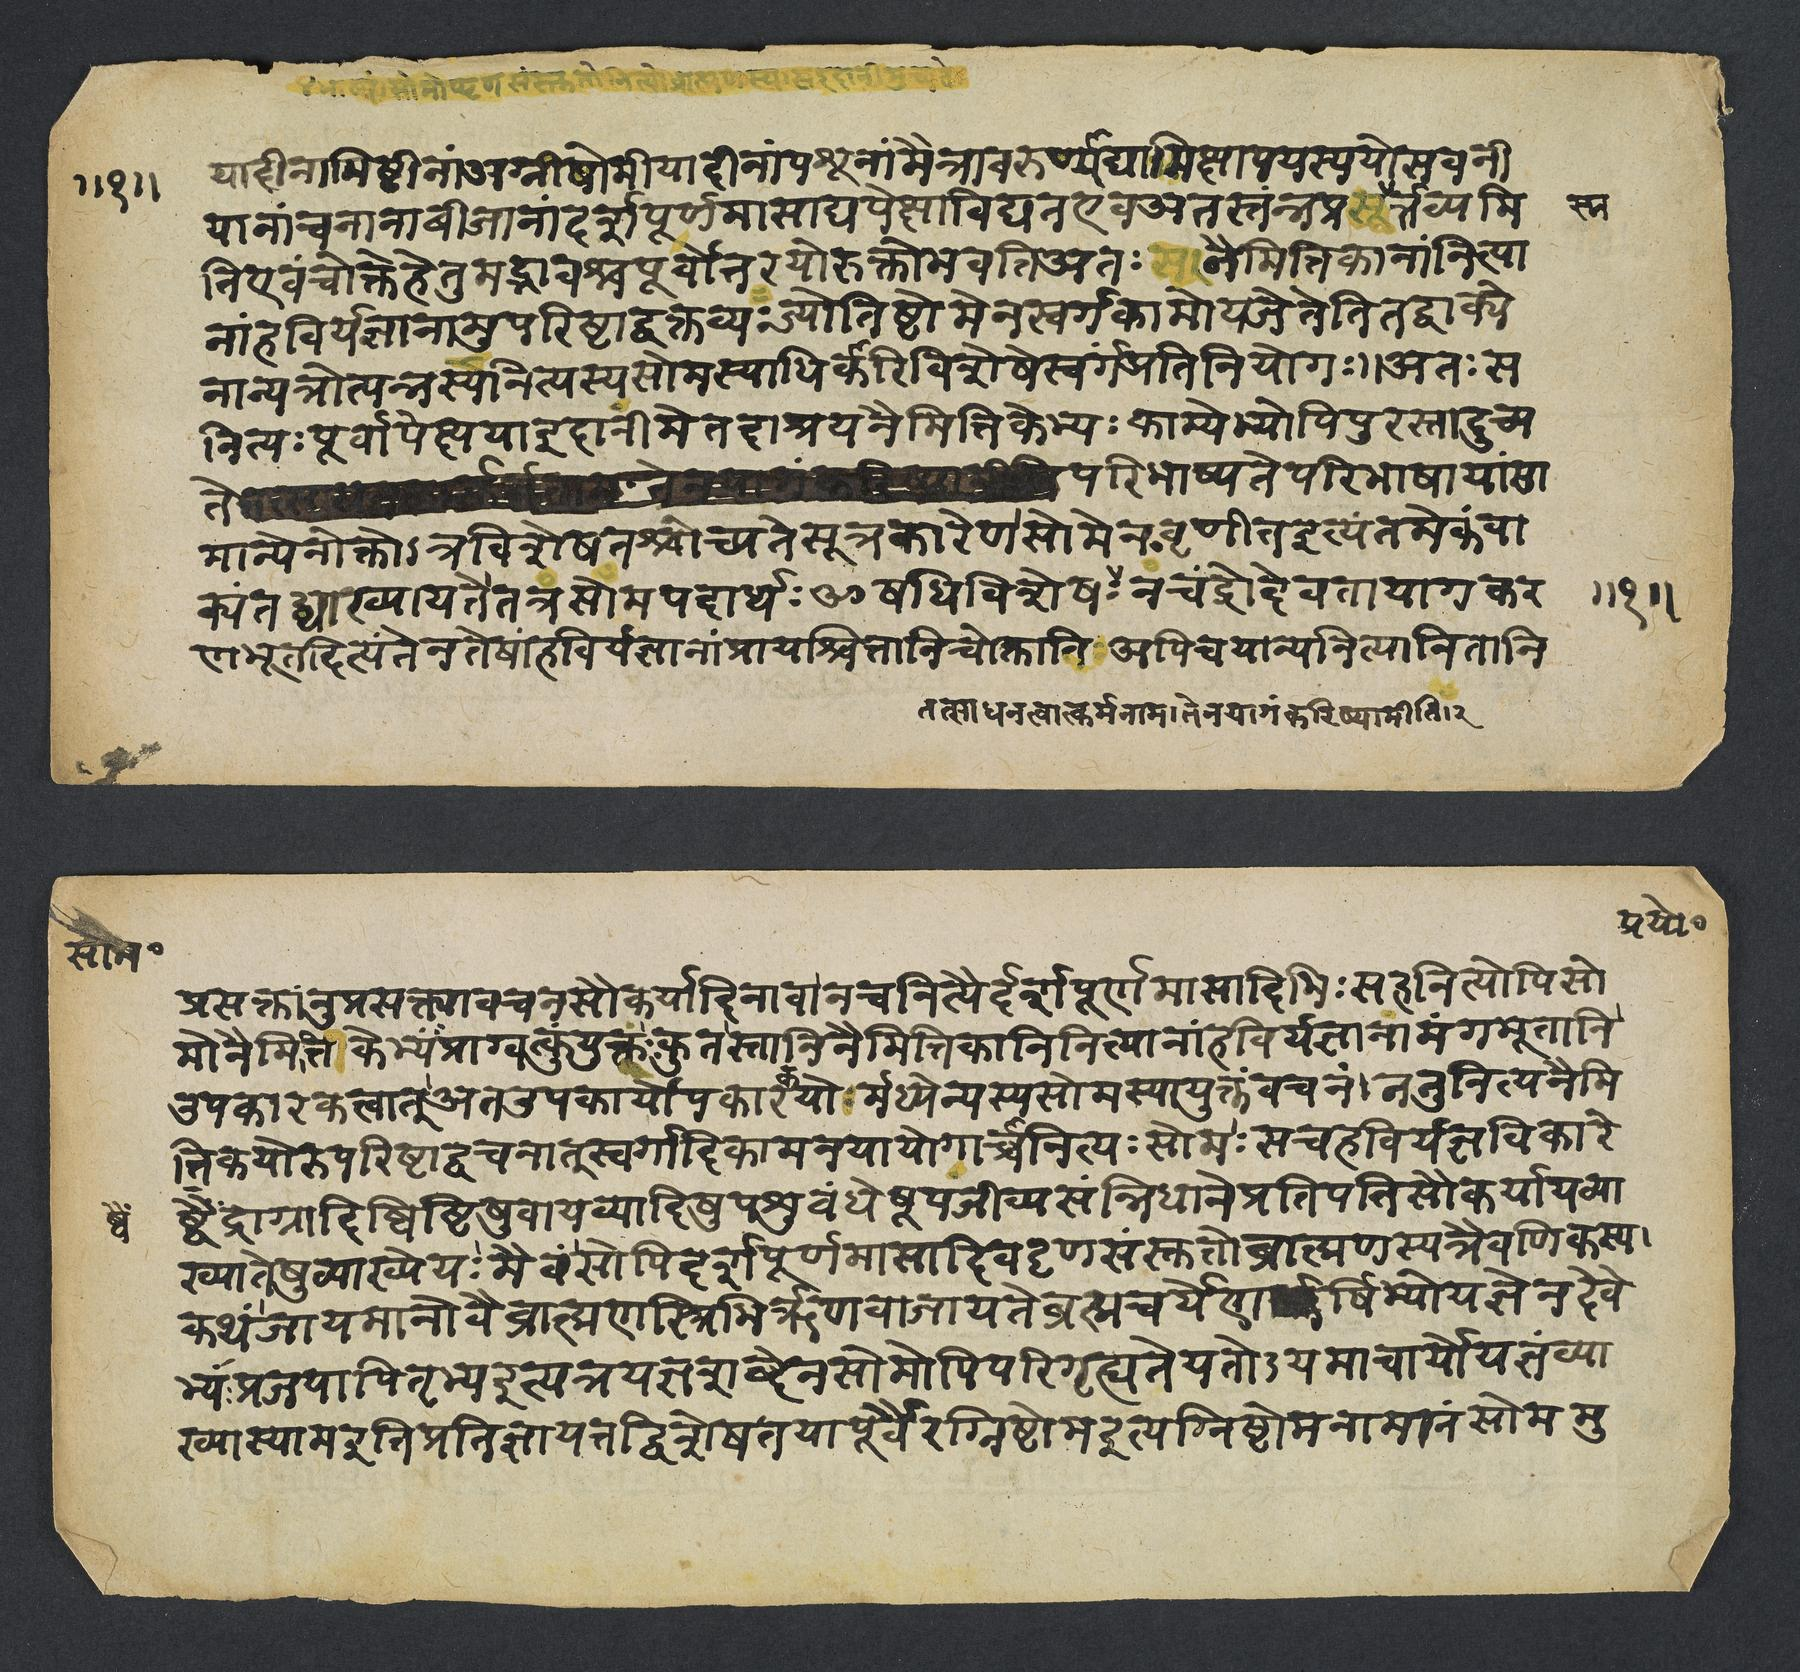 यादीनामिष्टीनांअग्नीषोमीयादीनांपशूनांमैत्रावरुण्यद्यामिक्षापयस्ययोसवनी
॥१॥
यानांचनानाबीजानांदर्शपूर्णमासाद्यपेक्षाविद्यतएवअतस्तंन्त्रप्रसूर्तव्यमि
स्म
तिएवंचोक्तहेतुमद्भावश्चपूर्वोत्तरयोरुक्तोभवतिअतः नैमित्तिकानांनित्या
नांहविर्यज्ञानामुपरिष्टाद्वक्तव्यः ज्योतिष्टोमेनस्वर्गकामोयजेतेतितद्वाक्ये
नान्यत्रोत्पन्नस्यनित्यस्यसोमस्याधिकारिविशेषेस्वर्गंप्रतिनियोगः॥अतःस
नित्यःपूर्वापेक्षयाइदानीमेतदाश्रयनैमित्तिकेभ्यःकाम्येभ्योपिपुरस्तादुच्य
ते परिभाष्यतेपरिभाषायांसा
मान्येनोक्तोऽत्रविशेषतश्चोच्यतेसूत्रकारेणसोमेनवृणीतइत्यंतमेकंवा
क्यंतद्व्याख्यायतेतत्रसोमपदार्थःओषधिविशेषःनचंद्रोदेवतायागकर
॥१॥
णभूतादित्यंतेनतेषांहविर्यज्ञानांप्रायश्चित्तानिचोक्तानिअपिचयान्यनित्यानितानि
तत्साधनत्वात्कर्मनाम।तेनयागंकरिष्यामीति।२
सोम॰
प्रयो॰
प्रसक्तानुप्रसक्त्यावचनसौकर्यादिनावानचनित्यैर्दर्शपूर्णमासादिभिःसहनित्योपिसो
मोनैमित्तिकेभ्यःप्राग्वक्तुंयुक्तःकुतस्तानिनैमित्तिकानिनित्यानांहविर्यज्ञानामंगभूतानि
उपकारकत्वात्अतउपकार्योपकारकयोर्मध्येन्यस्यसोमस्यायुक्तंवचनं।ननुनित्यनैमि
त्तिकयोरुपरिष्टाद्वचनात्स्वर्गादिकामनयायोगाच्चनित्यःसोमःसचहविर्यज्ञविकारे
ष्वैं
ष्वैंद्राग्नादिष्विष्टिषुवायव्यादिषुपशुबंधेषूपजीव्यसंन्निधानेप्रतिपत्तिसौकर्यायव्या
ख्यातेषुव्याख्येयःमैवंसोपिदर्शपूर्णमासादिवदृणसंस्कृतोब्राह्मणस्यत्रैवर्णिकस्य।
कथंजायमानोवैब्राह्मणस्त्रिभिर्ऋणवाजायतेब्रह्मचर्येण र्षिभ्योयज्ञेनदेवे
भ्यःप्रजयापितृभ्यइत्यत्रयज्ञशब्देनसोमोपिपरिगृह्यतेयतोऽयमाचार्योयज्ञंव्या
ख्यास्यामइतिप्रतिज्ञायतद्विशेषतयापूर्वैरग्निष्टोमइत्यग्निष्टोमनामानंसोममु